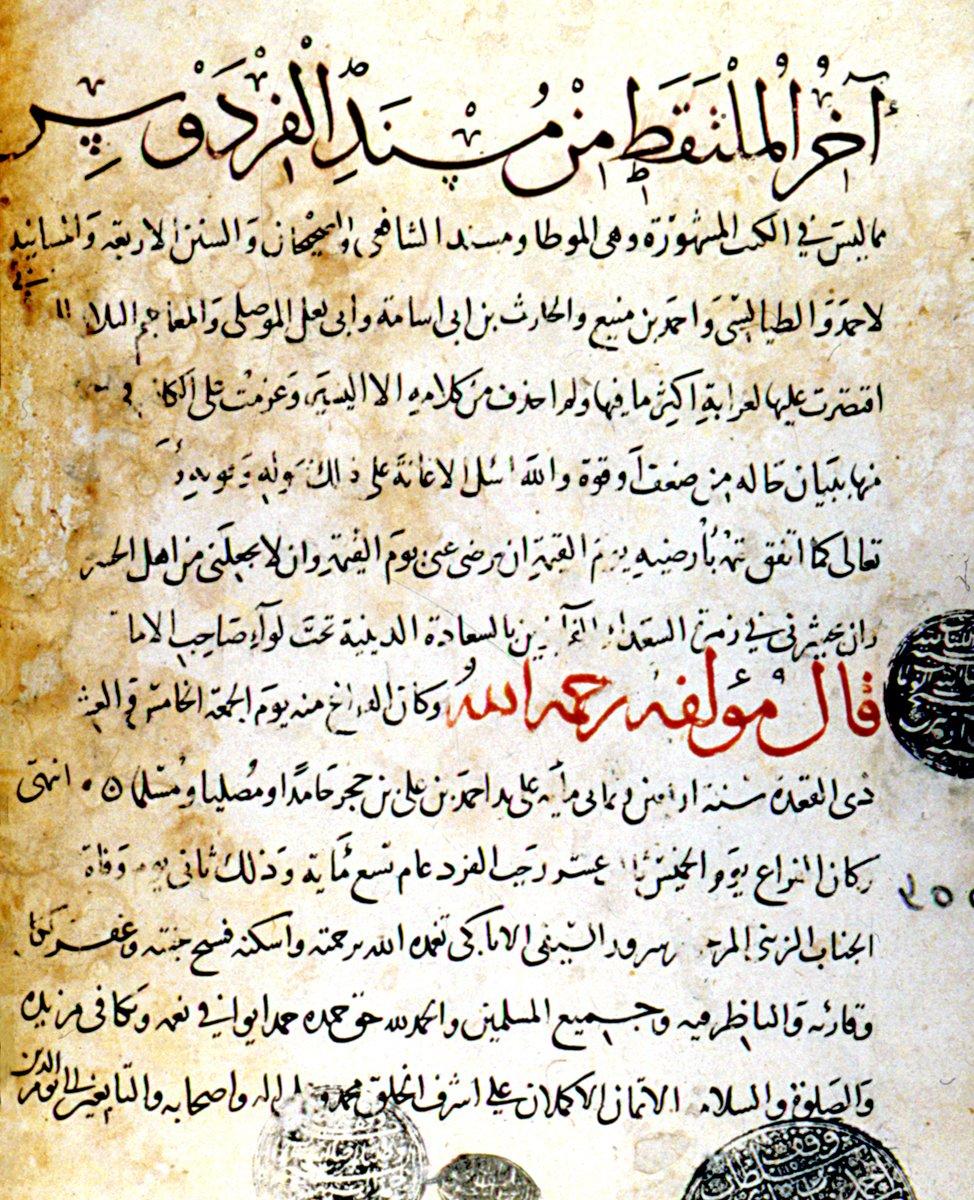 آخِرُ الْمُلْتَقَطِ مِنْ مُسْنَدِ الْفِرْدَوْسِ
مما ليس في الكتب المشهورة وهي الموطا ومسند الشافعي والصحيحان والسنن الاربعة والمسانيد
لاحمد والطيالسي واحمد بن منيع والحارث بن ابي اسامة وابي يعلى الموصلي والمعاجم الثلاثة
اقتصرت عليها لغرابة اكثر ما فيها ولم احذف من كلامه الا اليسير وعزمت على الكلام
منها ببيان حاله من ضعف او قوة والله اسئل الاعانة على ذلك
تعالى كما اتفق يوم القيمة ان يرضى عني يوم القيمة وان لا يجعلني من اهل
وان يحشرني في زمرة السعداء بالسعادة الدينية تحت لواء صاحب
قال مؤلفه رحمه الله وكان الفراغ منه يوم الجمعة الخامس
ذي القعدة سنة وثماني مأية على يد احمد بن علي بن حجر حامدا ومصليا ومسلما انتهى
وكان الفراغ يوم الخميس عشر رجب الفرد عام تسع مأية وذلك ثاني يوم وفاة
الجناب الزيني السيفي الاتابكي تغمده الله برحمته واسكنه فسيح جنته وغفر لكاتبه
وقارئه والناظر فيه وجميع المسلمين والحمد لله حق حمده حمدا يوافي نعمه ويكافي مزيده
والصلوة والسلام الاتمان الاكملان على اشرف الخلق محمد واله واصحابه والتابعين الى يوم الدين